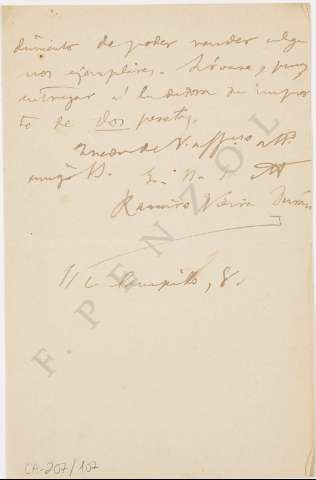 dimiento de poder vender algu
nos ejemplares. Sírvase, pues,
entregar a la dadora su impor
te de dos pesetas.
Queda de V. affmo. a
amigo
Ramiro Vieira Durán
S/c Campillo, 8.
F. PENZOL
CA-207/107